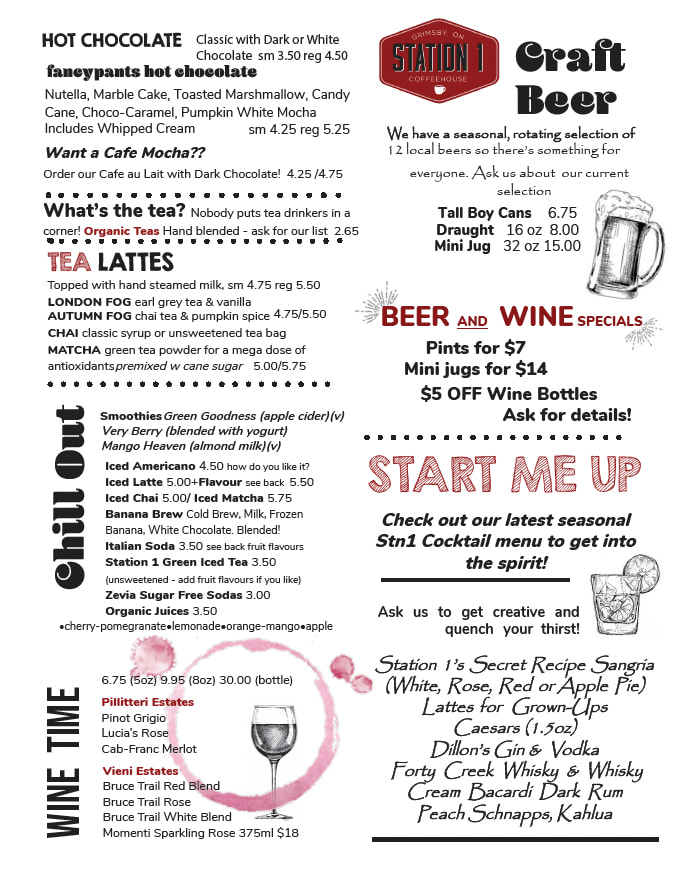 HOT CHOCOLATE Classic with Dark or White
Chocolate sm 3.50 reg 4.50
fancypants hot chocolate
Nutella, Marble Cake, Toasted Marshmallow, Candy
Cane, Choco-Caramel, Pumpkin White Mocha
Includes Whipped Cream sm 4.25 reg 5.25
Want a Cafe Mocha??
Order our Cafe au Lait with Dark Chocolate! 4.25 /4.75
What's the tea? Nobody puts tea drinkers in a
corner! Organic Teas Hand blended - ask for our list 2.65
TEA LATTES
Topped with hand steamed milk, sm 4.75 reg 5.50
LONDON FOG earl grey tea & vanilla
AUTUMN FOG chai tea & pumpkin spice 4.75/5.50
CHAI classic syrup or unsweetened tea bag
MATCHA green tea powder for a mega dose of
antioxidants premixed w cane sugar 5.00/5.75
Chill Out
Smoothies Green Goodness (apple cider)(v)
Very Berry (blended with yogurt)
Mango Heaven (almond milk)(v)
Iced Americano 4.50 how do you like it?
Iced Latte 5.00+Flavour see back 5.50
Iced Chai 5.00/ Iced Matcha 5.75
Banana Brew Cold Brew, Milk, Frozen
Banana, White Chocolate. Blended!
Italian Soda 3.50 see back fruit flavours
Station 1 Green Iced Tea 3.50
(unsweetened - add fruit flavours if you like)
Zevia Sugar Free Sodas 3.00
Organic Juices 3.50
•cherry-pomegranate•lemonade•orange-mango•apple
WINE TIME
6.75 (5oz) 9.95 (8oz) 30.00 (bottle)
Pillitteri Estates
Pinot Grigio
Lucia's Rose
Cab-Franc Merlot
Vieni Estates
Bruce Trail Red Blend
Bruce Trail Rose
Bruce Trail White Blend
Momenti Sparkling Rose 375ml $18
GRIMSBY, ON
STATION 1
COFFEEHOUSE
Craft
Beer
We have a seasonal, rotating selection of
12 local beers so there's something for
everyone. Ask us about our current
selection
Tall Boy Cans 6.75
Draught 16 oz 8.00
Mini Jug 32 oz 15.00
BEER AND WINE SPECIALS
Pints for $7
Mini jugs for $14
$5 OFF Wine Bottles
Ask for details!
START ME UP
Check out our latest seasonal
Stn1 Cocktail menu to get into
the spirit!
Ask us to get creative and
quench your thirst!
Station 1's Secret Recipe Sangria
(White, Rose, Red or Apple Pie)
Lattes for Grown-Ups
Caesars (1.5oz)
Dillon's Gin & Vodka
Forty Creek Whisky & Whisky
Cream Bacardi Dark Rum
Peach Schnapps, Kahlua